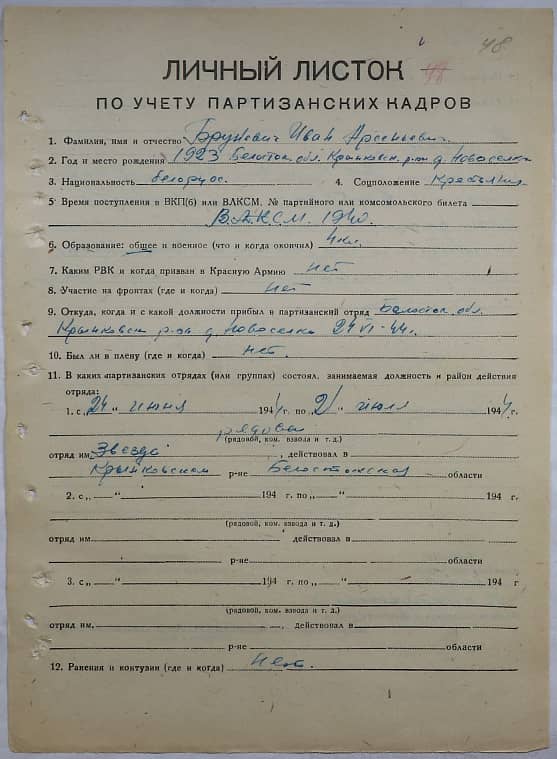 48
ЛИЧНЫЙ ЛИСТОК
ПО УЧЕТУ ПАРТИЗАНСКИХ КАДРОВ
1. Фамилия, имя и отчество Иван Арсеньевич
2. Год и место рождения 1923 Белосток. обл. Крынковск. р-он д. Новоселки
3. Национальность белорус. 4. Соцположение
5. Время поступления в ВКП(б) или ВЛКСМ, № партийного или комсомольского билета
ВЛКСМ. 1940.
6. Образование: общее и военное (что и когда окончил) 4 кл.
7. Каким РВК и когда призван в Красную Армию нет
8. Участие на фронтах (где и когда) нет
9. Откуда, когда и с какой должности прибыл в партизанский отряд Белосток. обл.
Крынковск р-он д. Новоселки 24 VI-44 г.
10. Был ли в плену (где и когда) нет.
11. В каких партизанских отрядах (или группах) состоял, занимаемая должность и район действия
отряда:
1. с „24" июня 1944 г. по „ " июля 1944 г.
рядовой
(рядовой, ком. взвода и т. д.)
отряд им. Звезда, действовал в
Крынковском р-не Белостокская области
2. с „ " 194 г. по „ " 194 г.
(рядовой, ком. взвода и т. д.)
отряд им. действовал в
р-не области
3. с „ " 194 г. по „ " 194 г
(рядовой, ком. взвода и т. д.)
отряд им. , действовал в
р-не области
12. Ранения и контузии (где и когда) Нет.